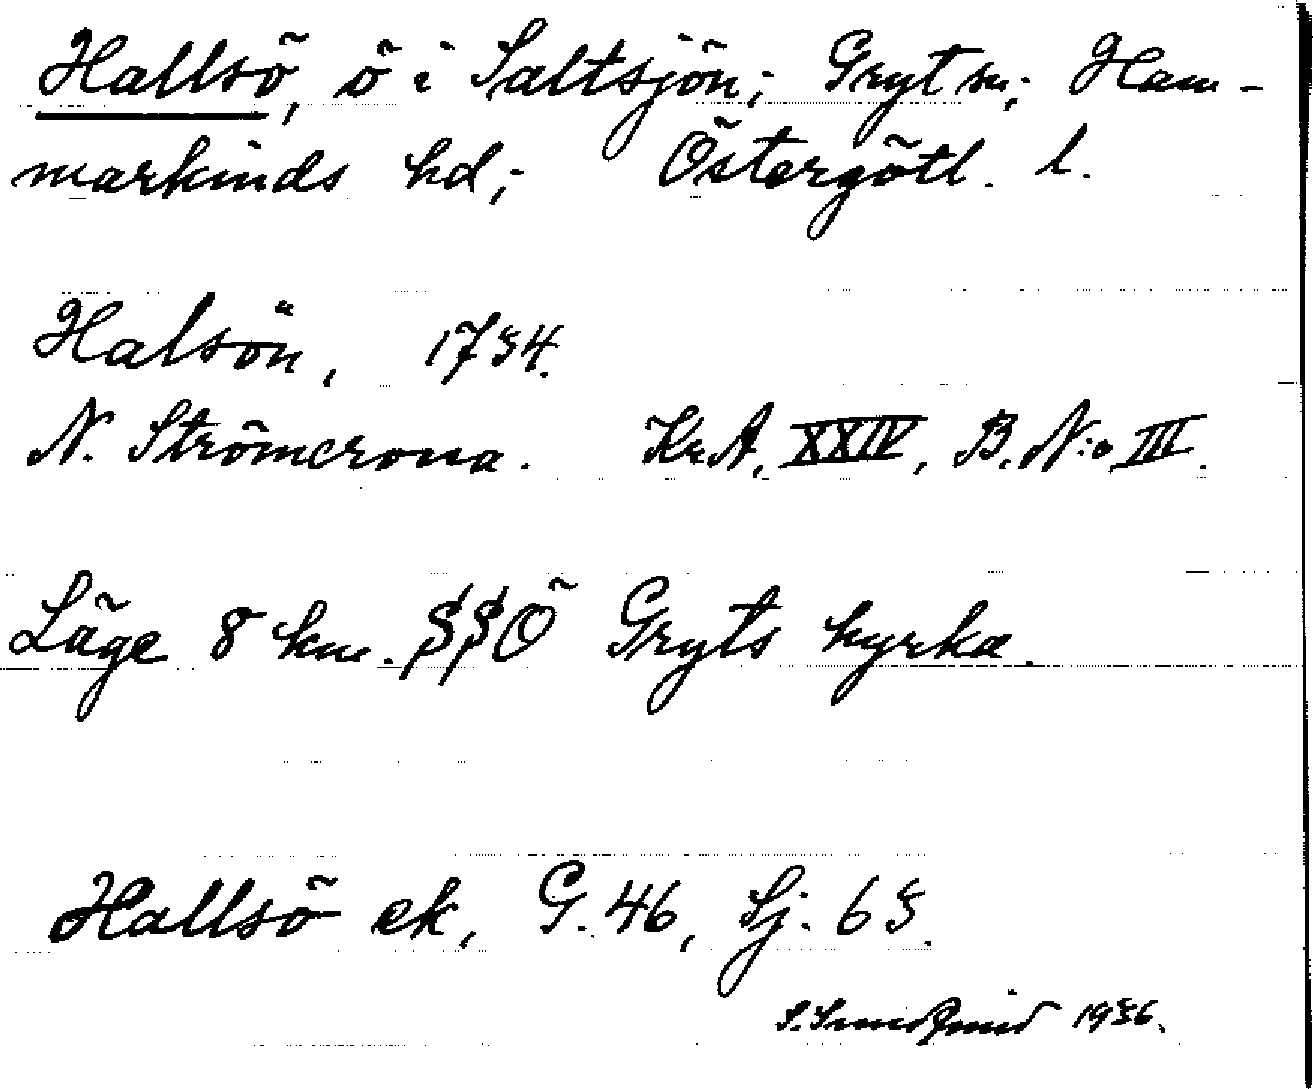 Hallsö, ö i Saltsjön; Gryt sn; Ham-
markinds hd; Östergötl. l.
Halsön, 1754.
N. Strömcrona. Kr.A, XXIV, B, N:o III.
Läge 8 km. SSÖ Gryts kyrka.
Hallsö ek, G. 46, Sj. 65.
1936.